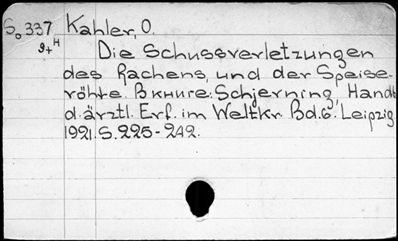 So 337 Kahler, O.
9+H Die Schussverletzungen
des Rachens, und der Speise-
röhte. Вкниге: Schjerning, Handb.
d. ärztl. Erf. im Weltkr. Bd.6. Leipzig
1921. S. 225-242.